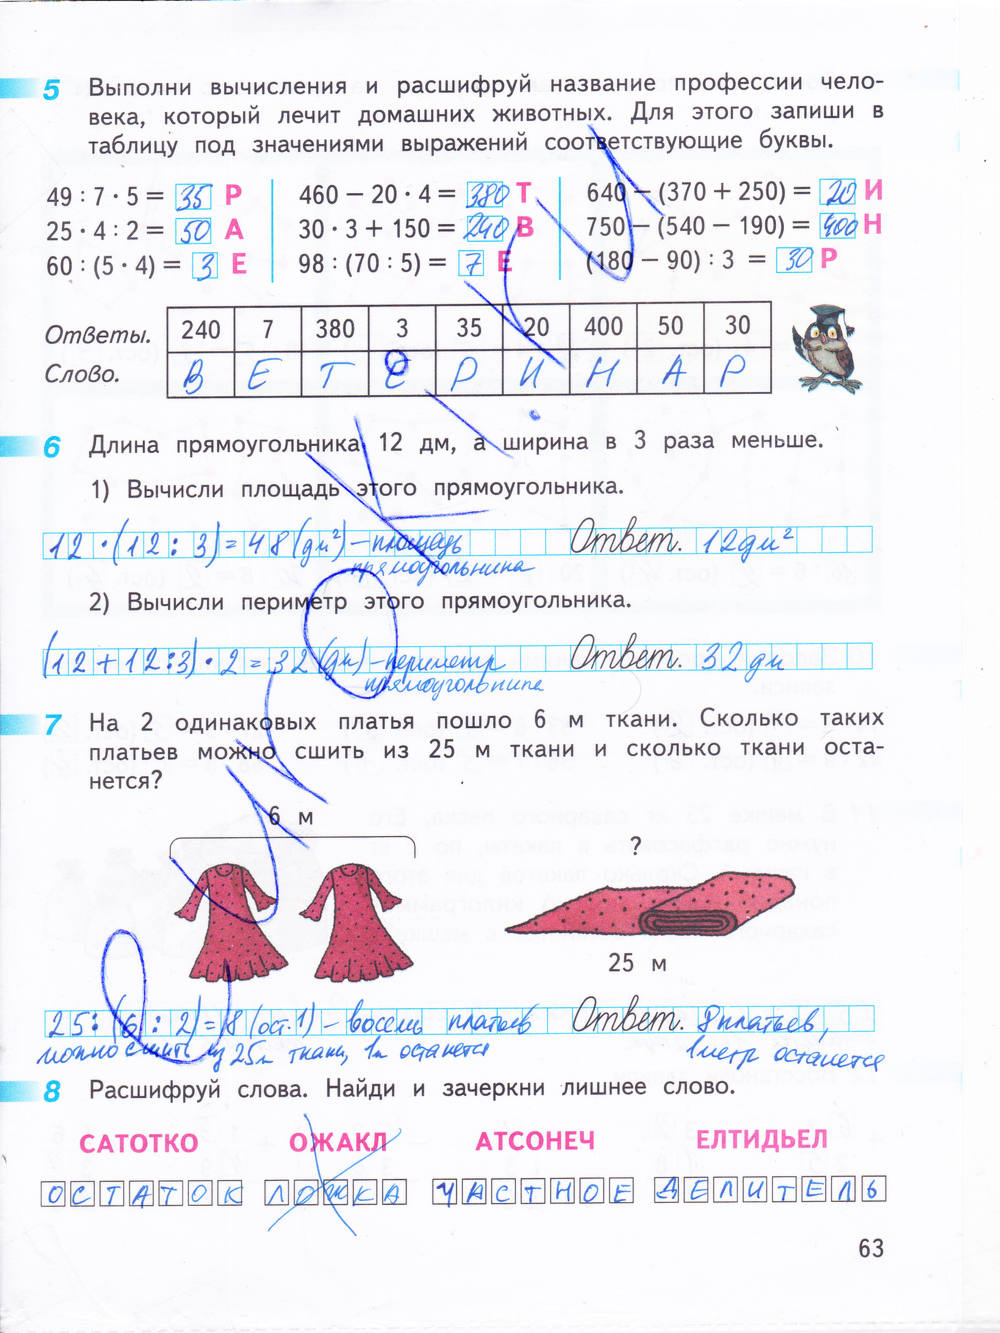 5 Выполни вычисления и расшифруй название профессии чело-
века, который лечит домашних животных. Для этого запиши в
таблицу под значениями выражений соответствующие буквы.
49 : 7 · 5 = 35 Р
460 − 20 · 4 = 380 Т
640 − (370 + 250) = 20 И
25 · 4 : 2 = 50 А
30 · 3 + 150 = 240 В
750 − (540 − 190) = 400 Н
60 : (5 · 4) = 3 Е
98 : (70 : 5) = 7 Е
(180 − 90) : 3 = 30 Р
Ответы. 240 7 380 3 35 20 400 50 30
Слово. В Е Т Е Р И Н А Р
6 Длина прямоугольника 12 дм, а ширина в 3 раза меньше.
1) Вычисли площадь этого прямоугольника.
12 · (12 : 3) = 48 (дм²) – площадь Ответ. 12 дм²
прямоугольника
2) Вычисли периметр этого прямоугольника.
(12 + 12 : 3) · 2 = 32 (дм) – периметр Ответ. 32 дм
прямоугольника
7 На 2 одинаковых платья пошло 6 м ткани. Сколько таких
платьев можно сшить из 25 м ткани и сколько ткани оста-
нется?
6 м
?
25 м
25 : (6 : 2) = 8 (ост. 1) – восемь платьев Ответ. 8 платьев,
можно сшить из 25м ткани, 1м останется 1 метр останется
8 Расшифруй слова. Найди и зачеркни лишнее слово.
САТОТКО ОЖАКЛ АТСОНЕЧ ЕЛТИДЬЕЛ
ОСТАТОК ЛОЖКА ЧАСТНОЕ ДЕЛИТЕЛЬ
63